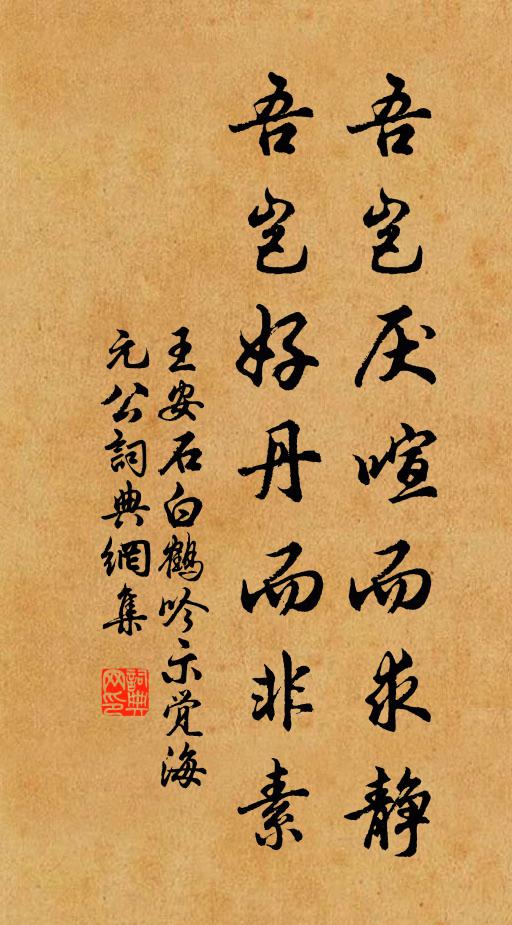 吾岂厌喧而求静
吾岂好丹而非素
王安石白鹤吟示觉海
元公詞典網集
詞典网印